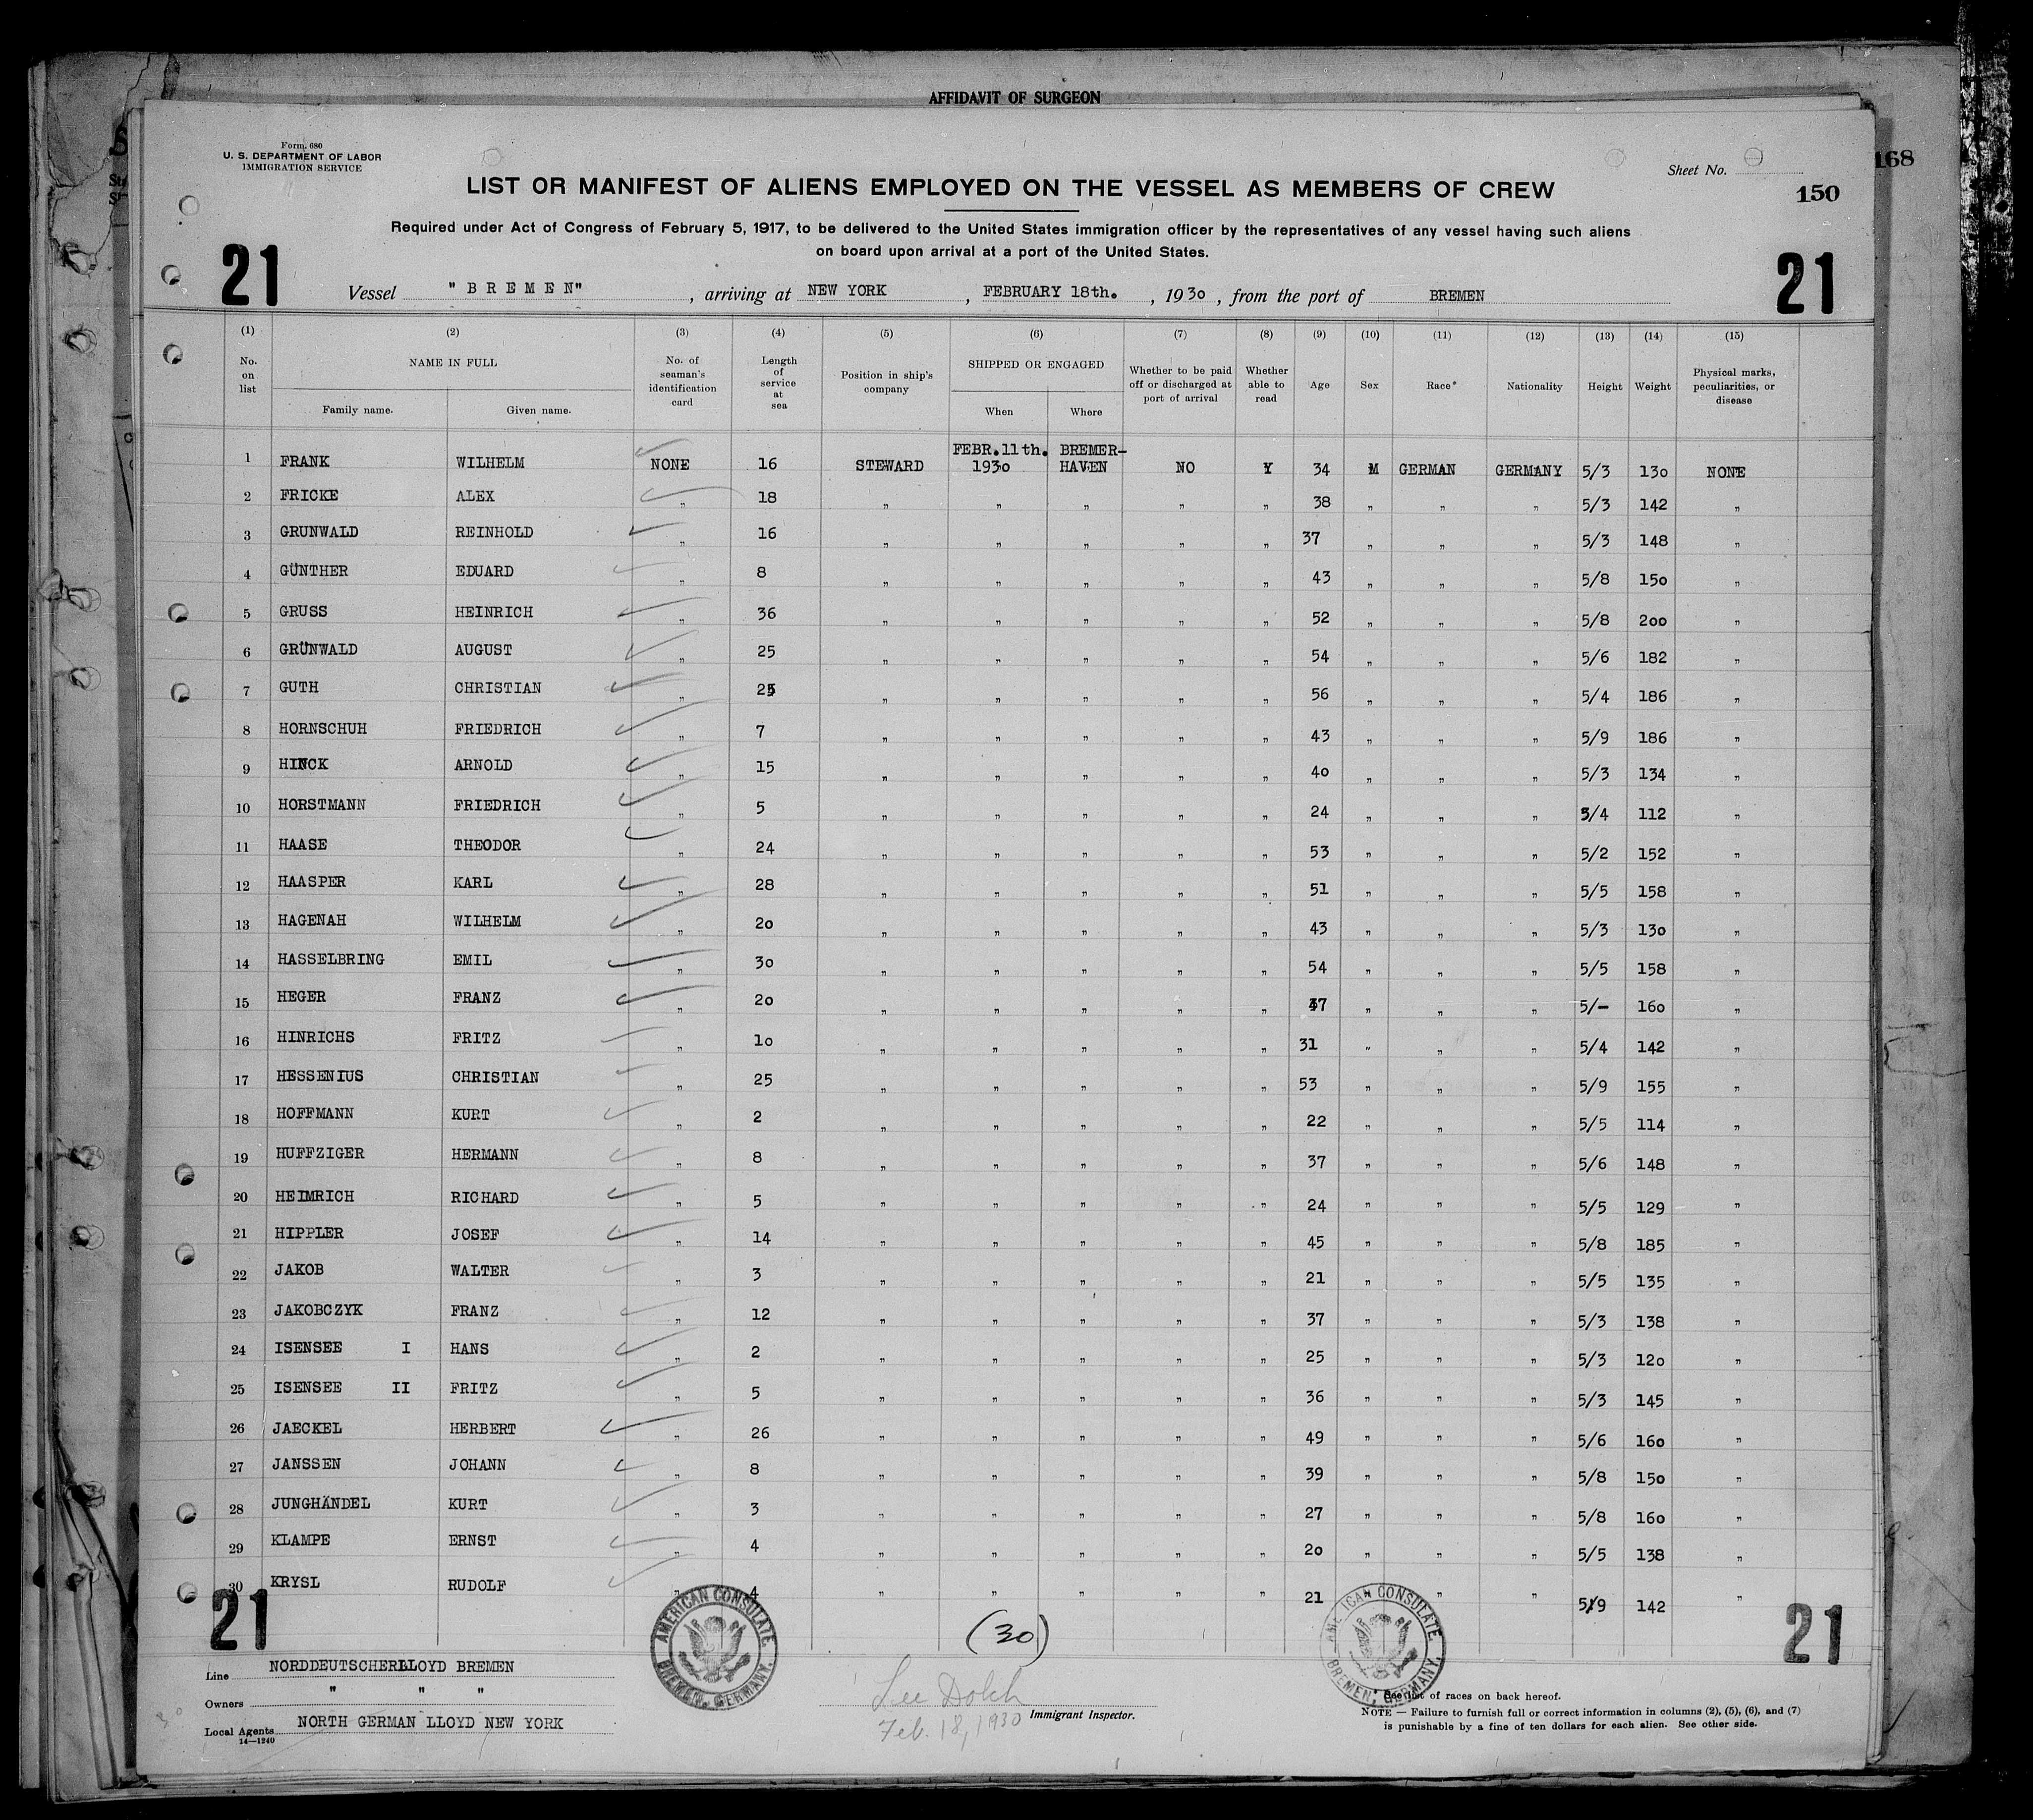 AFFIDAVIT OF SURGEON
Form 680
U. S. DEPARTMENT OF LABOR
IMMIGRATION SERVICE
Sheet No.
168
150
LIST OR MANIFEST OF ALIENS EMPLOYED ON THE VESSEL AS MEMBERS OF CREW
Required under Act of Congress of February 5, 1917, to be delivered to the United States immigration officer by the representatives of any vessel having such aliens
on board upon arrival at a port of the United States.
21 21
Vessel "BREMEN", arriving at NEW YORK, FEBRUARY 18th., 1930, from the port of BREMEN
(1) (2) (3) (4) (5) (6) (7) (8) (9) (10) (11) (12) (13) (14) (15)
No. on list NAME IN FULL Family name. Given name. No. of seaman's identification card Length of service at sea Position in ship's company SHIPPED OR ENGAGED When Where Whether to be paid off or discharged at port of arrival Whether able to read Age Sex Race* Nationality Height Weight Physical marks, peculiarities, or disease
1 FRANK WILHELM NONE 16 STEWARD FEBR.11th. 1930 BREMER-HAVEN NO Y 34 M GERMAN GERMANY 5/3 130 NONE
2 FRICKE ALEX " 18 " " " " " 38 " " " 5/3 142 "
3 GRUNWALD REINHOLD " 16 " " " " " 37 " " " 5/3 148 "
4 GÜNTHER EDUARD " 8 " " " " " 43 " " " 5/8 150 "
5 GRUSS HEINRICH " 36 " " " " " 52 " " " 5/8 200 "
6 GRÜNWALD AUGUST " 25 " " " " " 54 " " " 5/6 182 "
7 GUTH CHRISTIAN " 25 " " " " " 56 " " " 5/4 186 "
8 HORNSCHUH FRIEDRICH " 7 " " " " " 43 " " " 5/9 186 "
9 HINCK ARNOLD " 15 " " " " " 40 " " " 5/3 134 "
10 HORSTMANN FRIEDRICH " 5 " " " " " 24 " " " 5/4 112 "
11 HAASE THEODOR " 24 " " " " " 53 " " " 5/2 152 "
12 HAASPER KARL " 28 " " " " " 51 " " " 5/5 158 "
13 HAGENAH WILHELM " 20 " " " " " 43 " " " 5/3 130 "
14 HASSELBRING EMIL " 30 " " " " " 54 " " " 5/5 158 "
15 HEGER FRANZ " 20 " " " " " " " " 5/- 160 "
16 HINRICHS FRITZ " 10 " " " " " 31 " " " 5/4 142 "
17 HESSENIUS CHRISTIAN " 25 " " " " " 53 " " " 5/9 155 "
18 HOFFMANN KURT " 2 " " " " " 22 " " " 5/5 114 "
19 HUFFZIGER HERMANN " 8 " " " " " 37 " " " 5/6 148 "
20 HEIMRICH RICHARD " 5 " " " " " 24 " " " 5/5 129 "
21 HIPPLER JOSEF " 14 " " " " " 45 " " " 5/8 185 "
22 JAKOB WALTER " 3 " " " " " 21 " " " 5/5 135 "
23 JAKOBCZYK FRANZ " 12 " " " " " 37 " " " 5/3 138 "
24 ISENSEE I HANS " 2 " " " " " 25 " " " 5/3 120 "
25 ISENSEE II FRITZ " 5 " " " " " 36 " " " 5/3 145 "
26 JAECKEL HERBERT " 26 " " " " " 49 " " " 5/6 160 "
27 JANSSEN JOHANN " 8 " " " " " 39 " " " 5/8 150 "
28 JUNGHÄNDEL KURT " 3 " " " " " 27 " " " 5/8 160 "
29 KLAMPE ERNST " 4 " " " " " 20 " " " 5/5 138 "
30 KRYSL RUDOLF " 4 " " " " " 21 " " " 5/9 142 "
21 21
AMERICAN CONSULATE, BREMEN, GERMANY.
(30)
AMERICAN CONSULATE, BREMEN, GERMANY.
Line NORDDEUTSCHER LLOYD BREMEN
Owners " " "
Local Agents NORTH GERMAN LLOYD NEW YORK
14—1240
Lee Dolch
Feb. 18, 1930 Immigrant Inspector.
See list of races on back hereof.
NOTE — Failure to furnish full or correct information in columns (2), (5), (6), and (7)
is punishable by a fine of ten dollars for each alien. See other side.